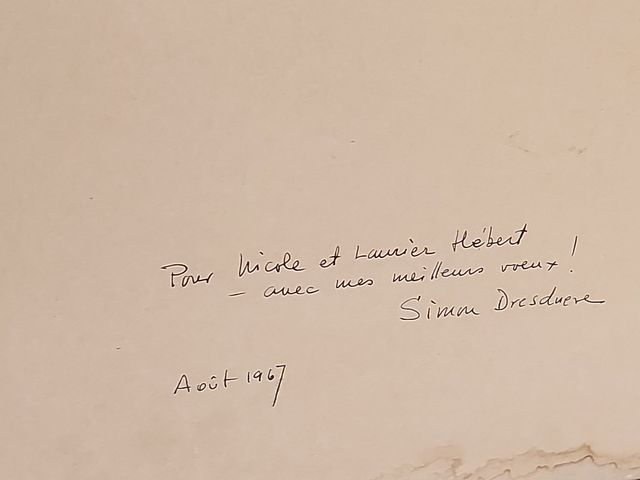 Pour Nicole et Laurier Hébert
– avec mes meilleurs voeux !
Simon Dresdnere
Août 1967